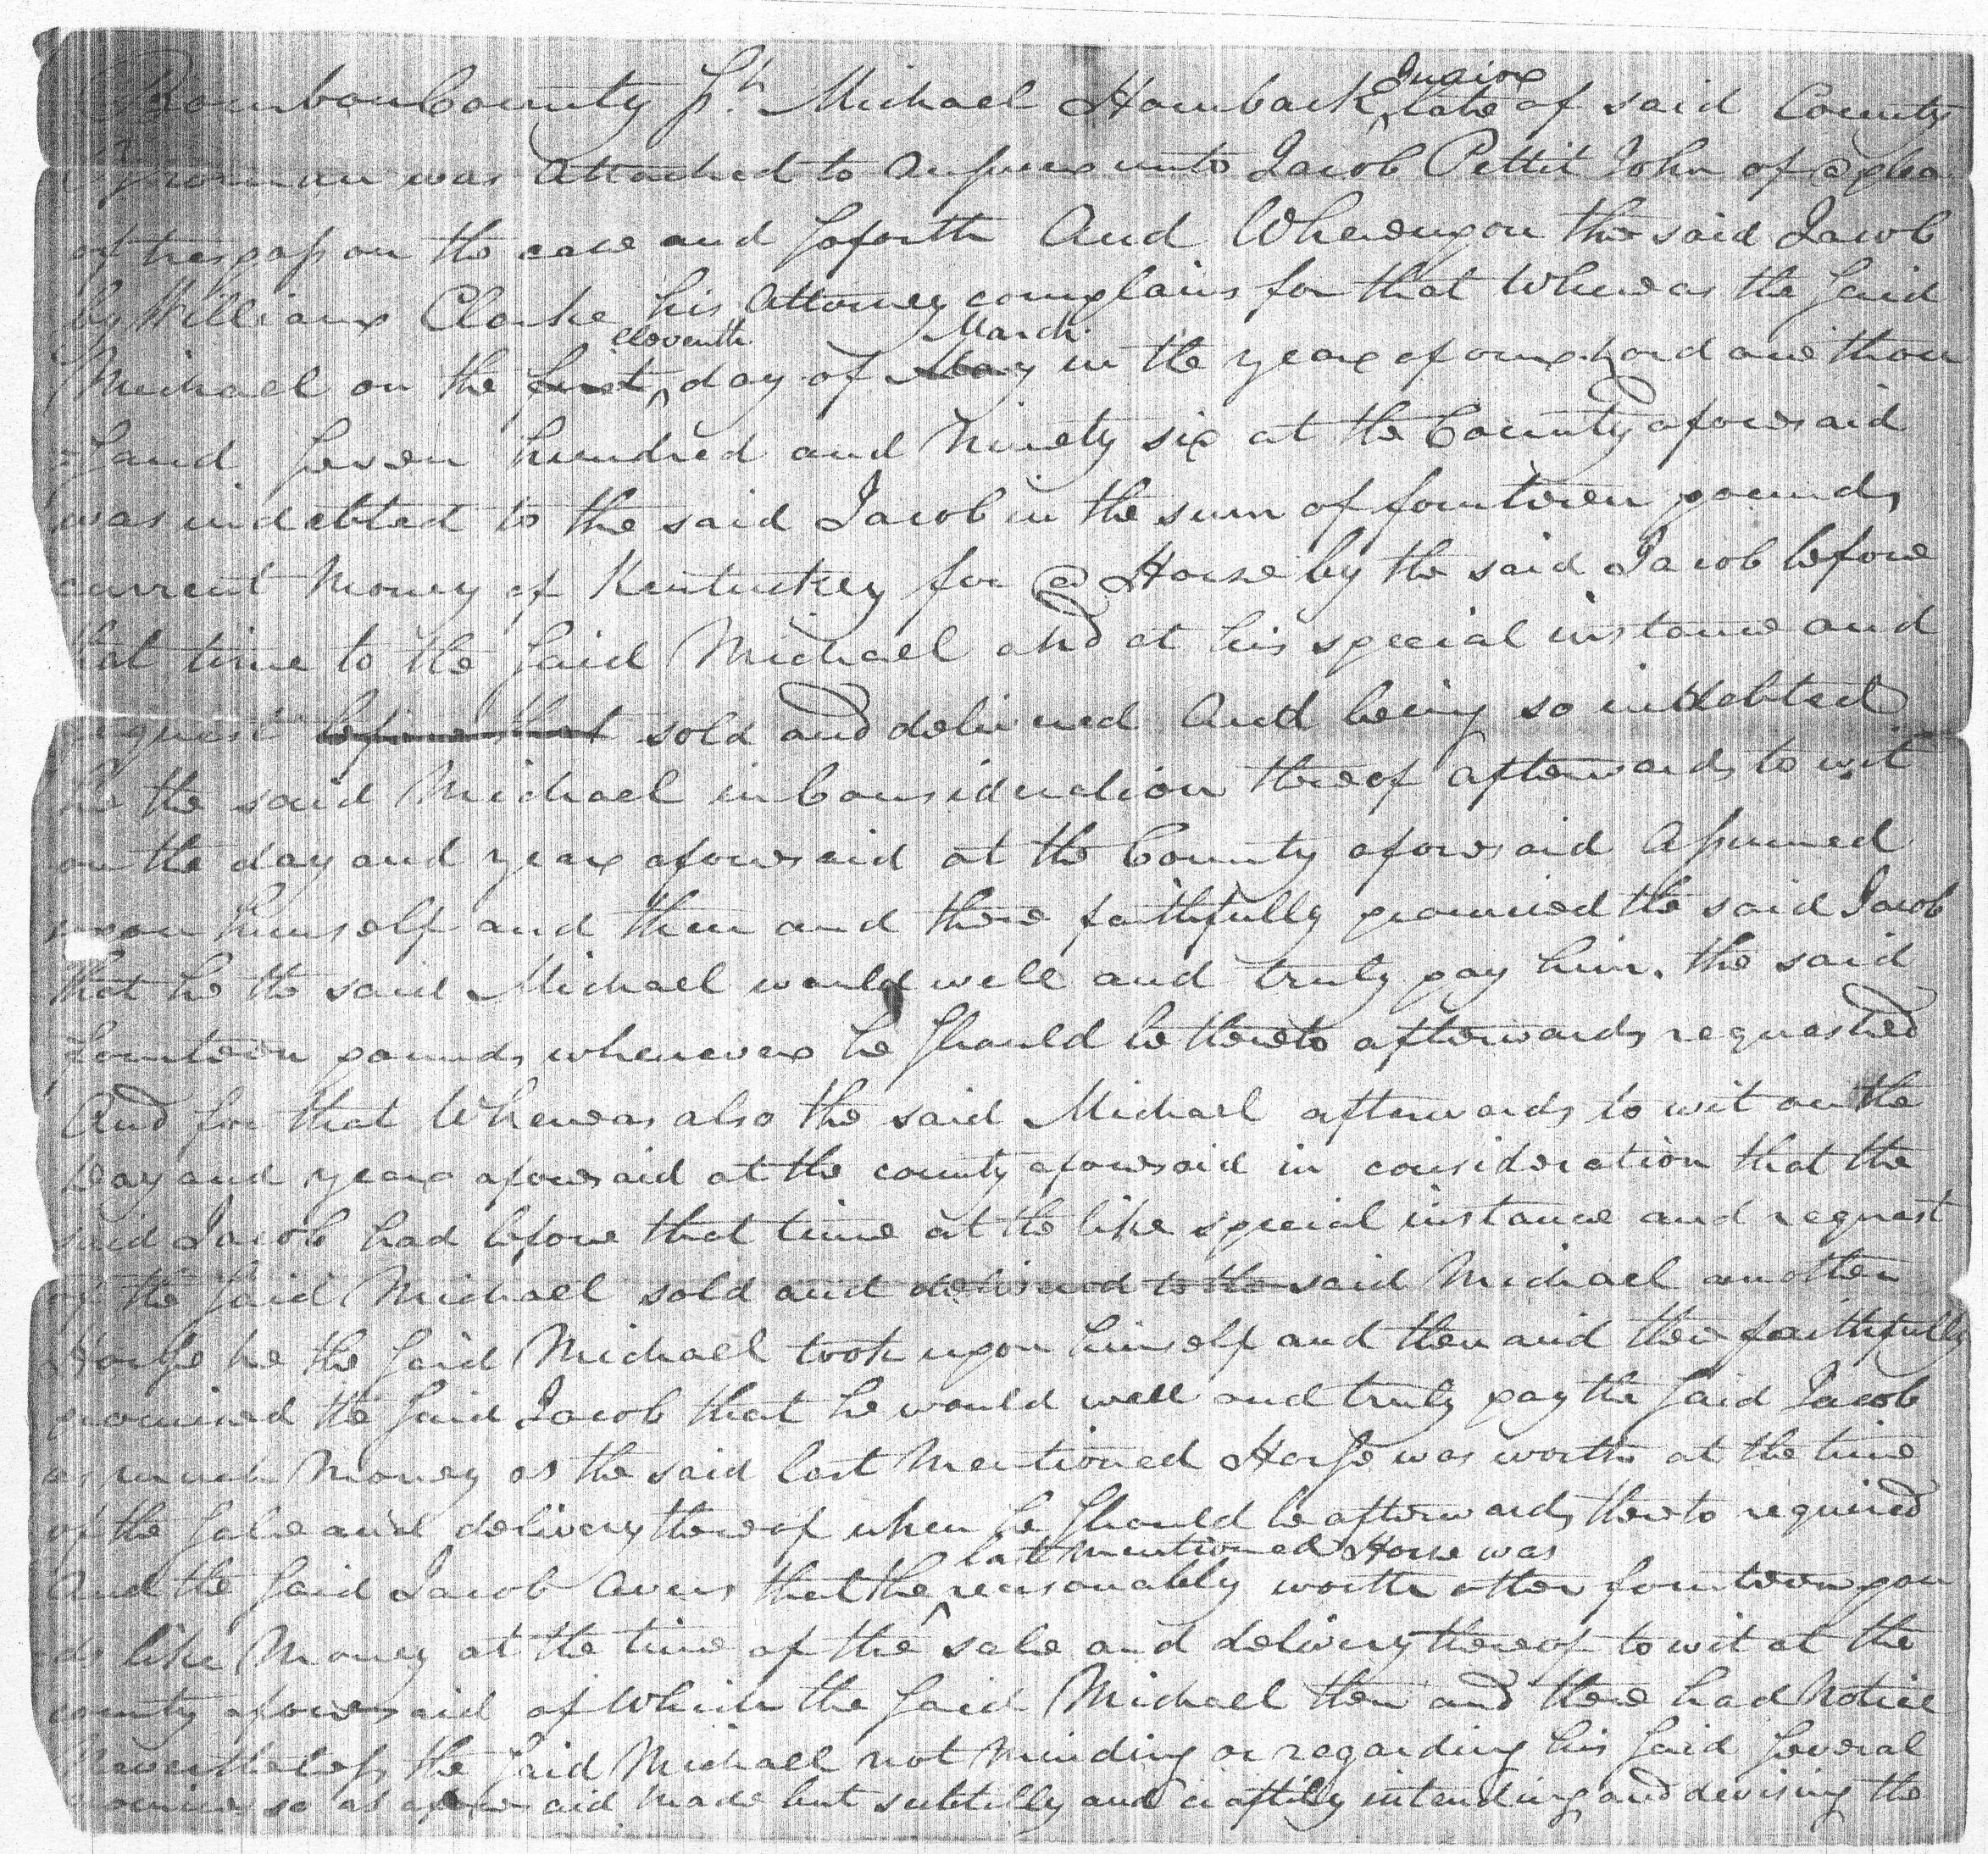 Bourbon County Sct. Michael Hornback ^Junior late of said County
Yeoman was attached to answer unto Jacob Pettit John of @ plea
of trespass on the case and soforth And Whereupon the said Jacob
by William Clarke his Attorney complains for that Whereas the said
Michael on the first ^eleventh day of May March in the year of our Lord one thou
=sand seven hundred and Ninety six at the County aforesaid
was indebted to the said Jacob in the sum of fourteen pounds
current Money of Kentuckey for @ Horse by the said Jacob before
that time to the said Michael and at his special instance and
request before that sold and delivered And being so indebted
he the said Michael in Consideration thereof afterwards to wit
on the day and year aforesaid at the County aforesaid Assumed
upon himself and then and there faithfully promised the said Jacob
that he the said Michael would well and truly pay him the said
fourteen pounds whenever he should be thereto afterwards requested
And for that Whereas also the said Michael afterwards to wit on the
Day and year aforesaid at the county aforesaid in consideration that the
said Jacob had before that time at the like special instance and request
of the said Michael sold and delivered to the said Michael another
Horse he the said Michael took upon himself and then and there faithfully
promised the said Jacob that he would well and truly pay the said Jacob
as much Money as the said last Mentioned Horse was worth at the time
of the sale and delivery thereof when he should be afterwards thereto required
And the said Jacob avers that the ^last mentioned Horse was reasonably worth other fourteen poun
ds like Money at the time of the sale and delivery thereof to wit at the
county aforesaid of Which the said Michael then and there had Notice
Nevertheless the said Michael not Minding or regarding his said several
promises so as aforesaid Made but subtilly and craftily intending and devising the